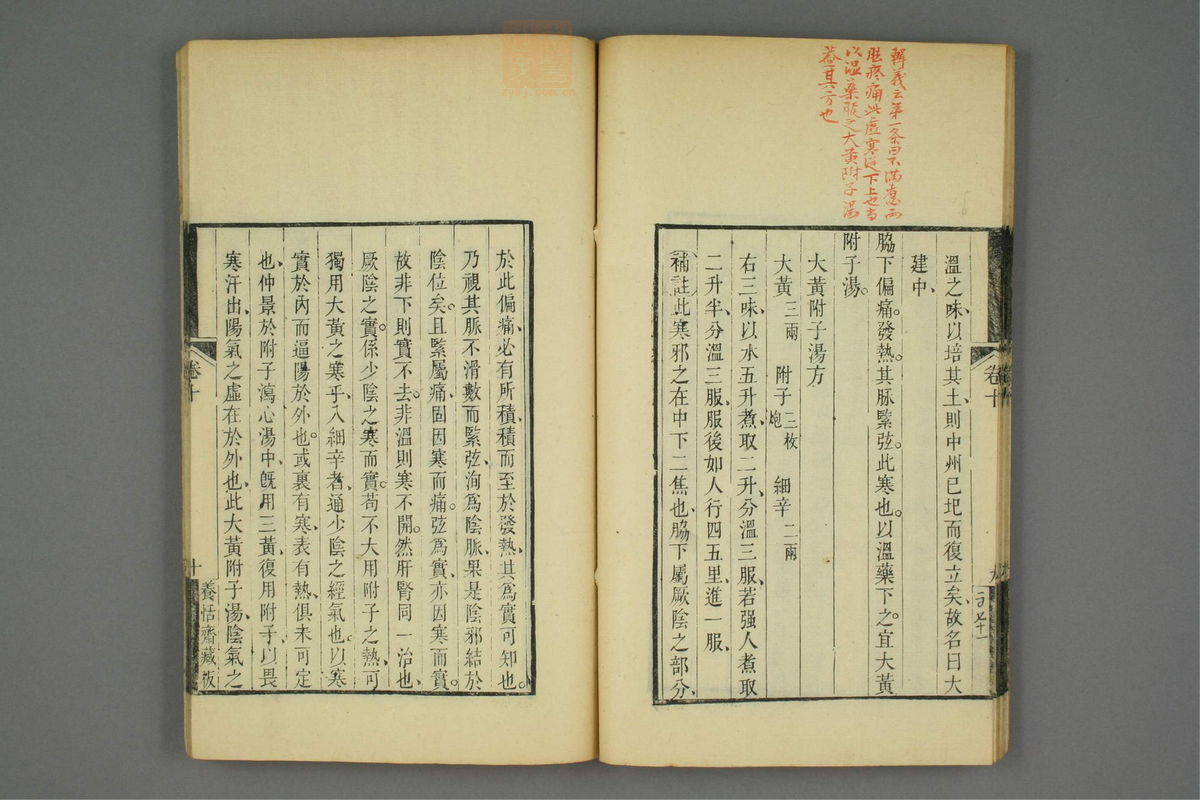 辨義云第一条曰不满者必而
胠疼痛此虛寒從下上也当
以温藥服之大黄附子湯
蓋其方也
溫之味以培其土、則中州已圯而復立矣、故名曰大
建中、
脇下偏痛。發熱。其脉緊弦。此寒也。以溫藥下之。宜大黃
附子湯。
大黃附子湯方
大黃三兩 附子三枚炮 細辛二兩
右三味、以水五升煮、取二升、分溫三服、若强人煮取
二升半、分溫三服、服後如人行四五里、進一服、
補註此寒邪之在中下二焦也、脇下屬厥陰之部分、
卷十
九
於此偏痛、必有所積、積而至於發熱、其爲實可知也。
乃視其脈不滑數而緊弦、洵爲陰脈、果是陰邪結於
陰位矣。且緊屬痛、固因寒而痛。弦爲實、亦因寒而實。
故非下則實不去。非溫則寒不開。然肝腎同一治也、
厥陰之實。係少陰之寒而實。苟不大用附子之熱、可
獨用大黃之寒乎、入細辛者、通少陰之經氣也。以寒
實於內而逼陽於外也。或裏有寒、表有熱、俱未可定
也、仲景於附子瀉心湯中、旣用三黃、復用附子、以畏
寒汗出、陽氣之虛在於外也、此大黃附子湯、陰氣之
卷十
十
養恬齋藏板